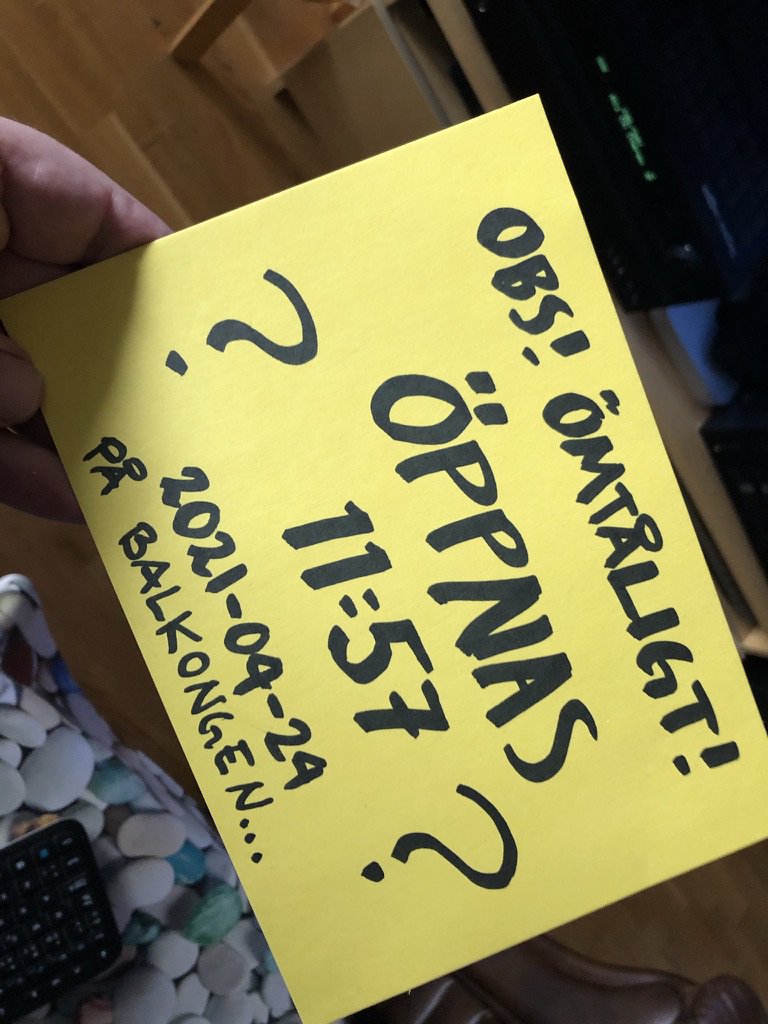 OBS! ÖMTÅLIGT!
ÖPPNAS
? 11:57 ?
2021-04-24
PÅ BALKONGEN...